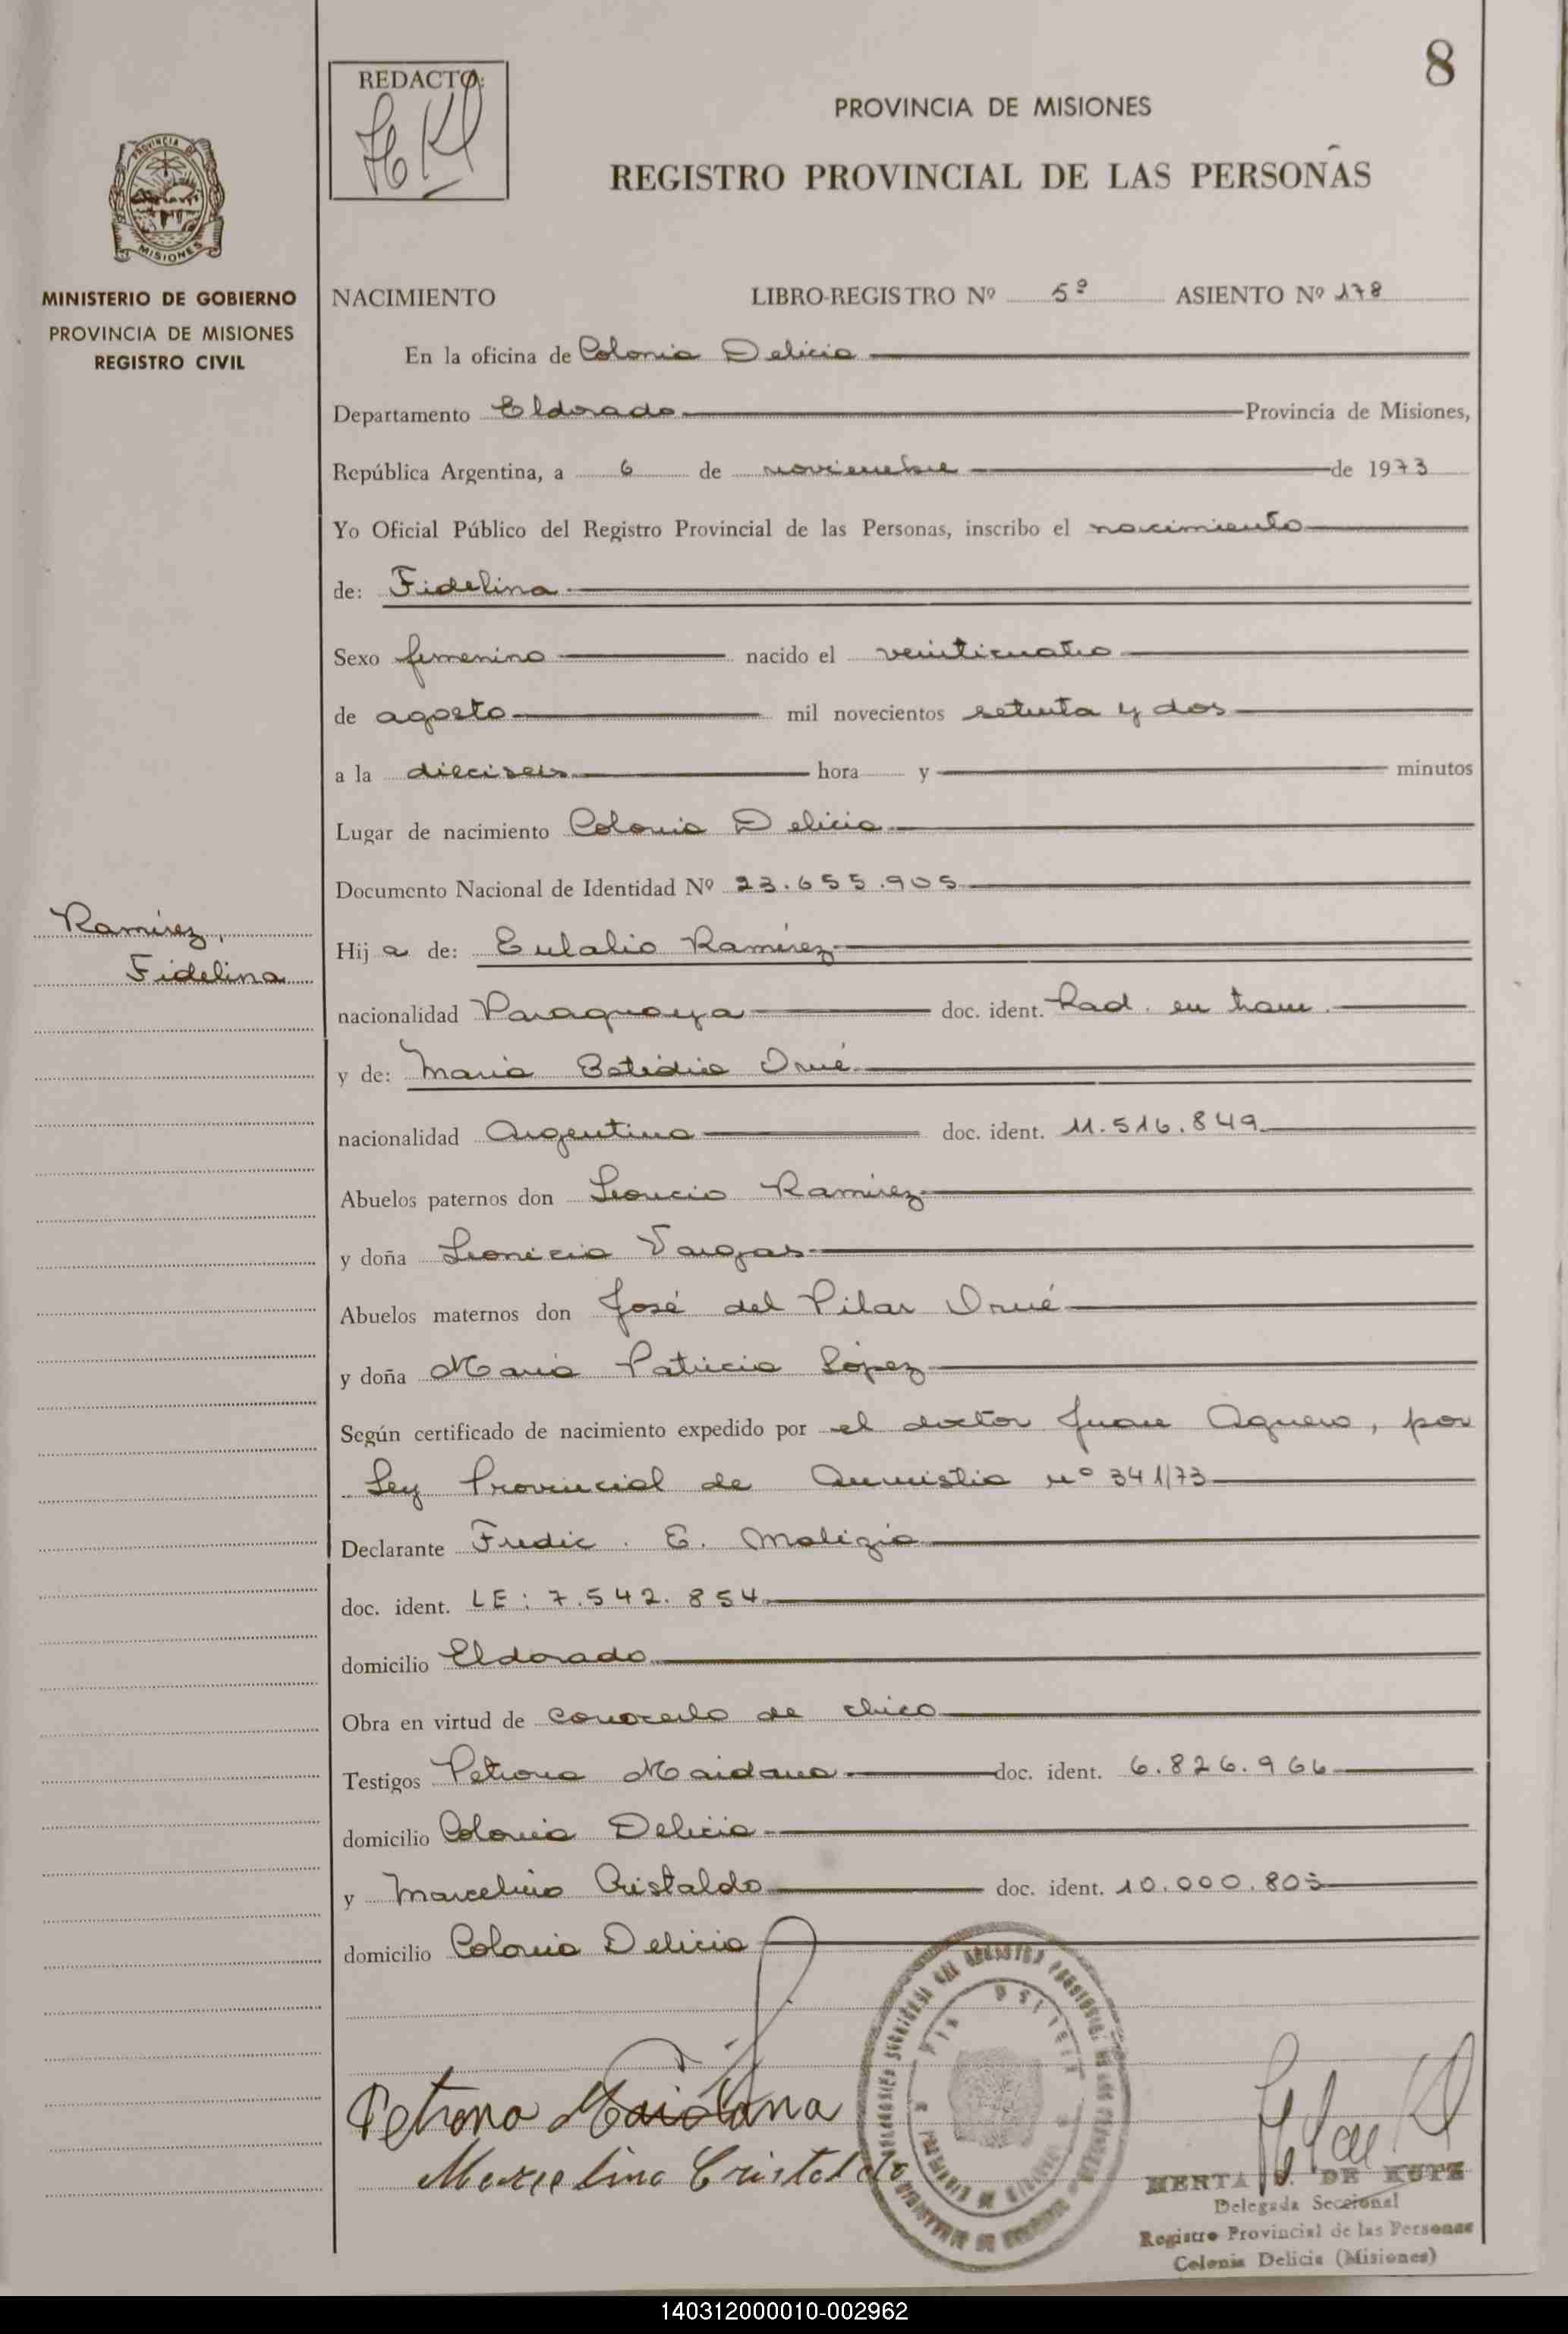 8
REDACTO:
PROVINCIA DE MISIONES
REGISTRO PROVINCIAL DE LAS PERSONAS
PROVINCIA DE
MISIONES
MINISTERIO DE GOBIERNO
PROVINCIA DE MISIONES
REGISTRO CIVIL
NACIMIENTO LIBRO-REGISTRO Nº 5º ASIENTO Nº 178
En la oficina de Colonia Delicia
Departamento Eldorado Provincia de Misiones,
República Argentina, a 6 de noviembre de 1973
Yo Oficial Público del Registro Provincial de las Personas, inscribo el nacimiento
de: Fidelina
Sexo femenino nacido el veinticuatro
de agosto mil novecientos setenta y dos
a la dieciseis hora y minutos
Lugar de nacimiento Colonia Delicia
Documento Nacional de Identidad Nº 23.655.905
Ramirez,
Fidelina
Hij a de: Eulalio Ramirez
nacionalidad Paraguaya doc. ident. Rad. en tram.
y de: Maria Orué
nacionalidad Argentina doc. ident. 11.516.849
Abuelos paternos don Leoncio Ramirez
y doña Leonicia Vargas
Abuelos maternos don José del Pilar Orué
y doña Maria Patricia López
Según certificado de nacimiento expedido por el doctor Juan Aguero, por
Ley Provincial de Amnistia nº 341/73
Declarante Fredic. E. Malizia
doc. ident. LE: 7.542.854
domicilio Eldorado
Obra en virtud de conocerlo de chico
Testigos Petrona Maidana doc. ident. 6.826.966
domicilio Colonia Delicia
y Marcelino Cristaldo doc. ident. 10.000.805
domicilio Colonia Delicia
Petrona Maidana
Marcelino Cristaldo
HERTA DE KUTZ
Delegada Seccional
Registro Provincial de las Personas
Colonia Delicia (Misiones)
140312000010-002962